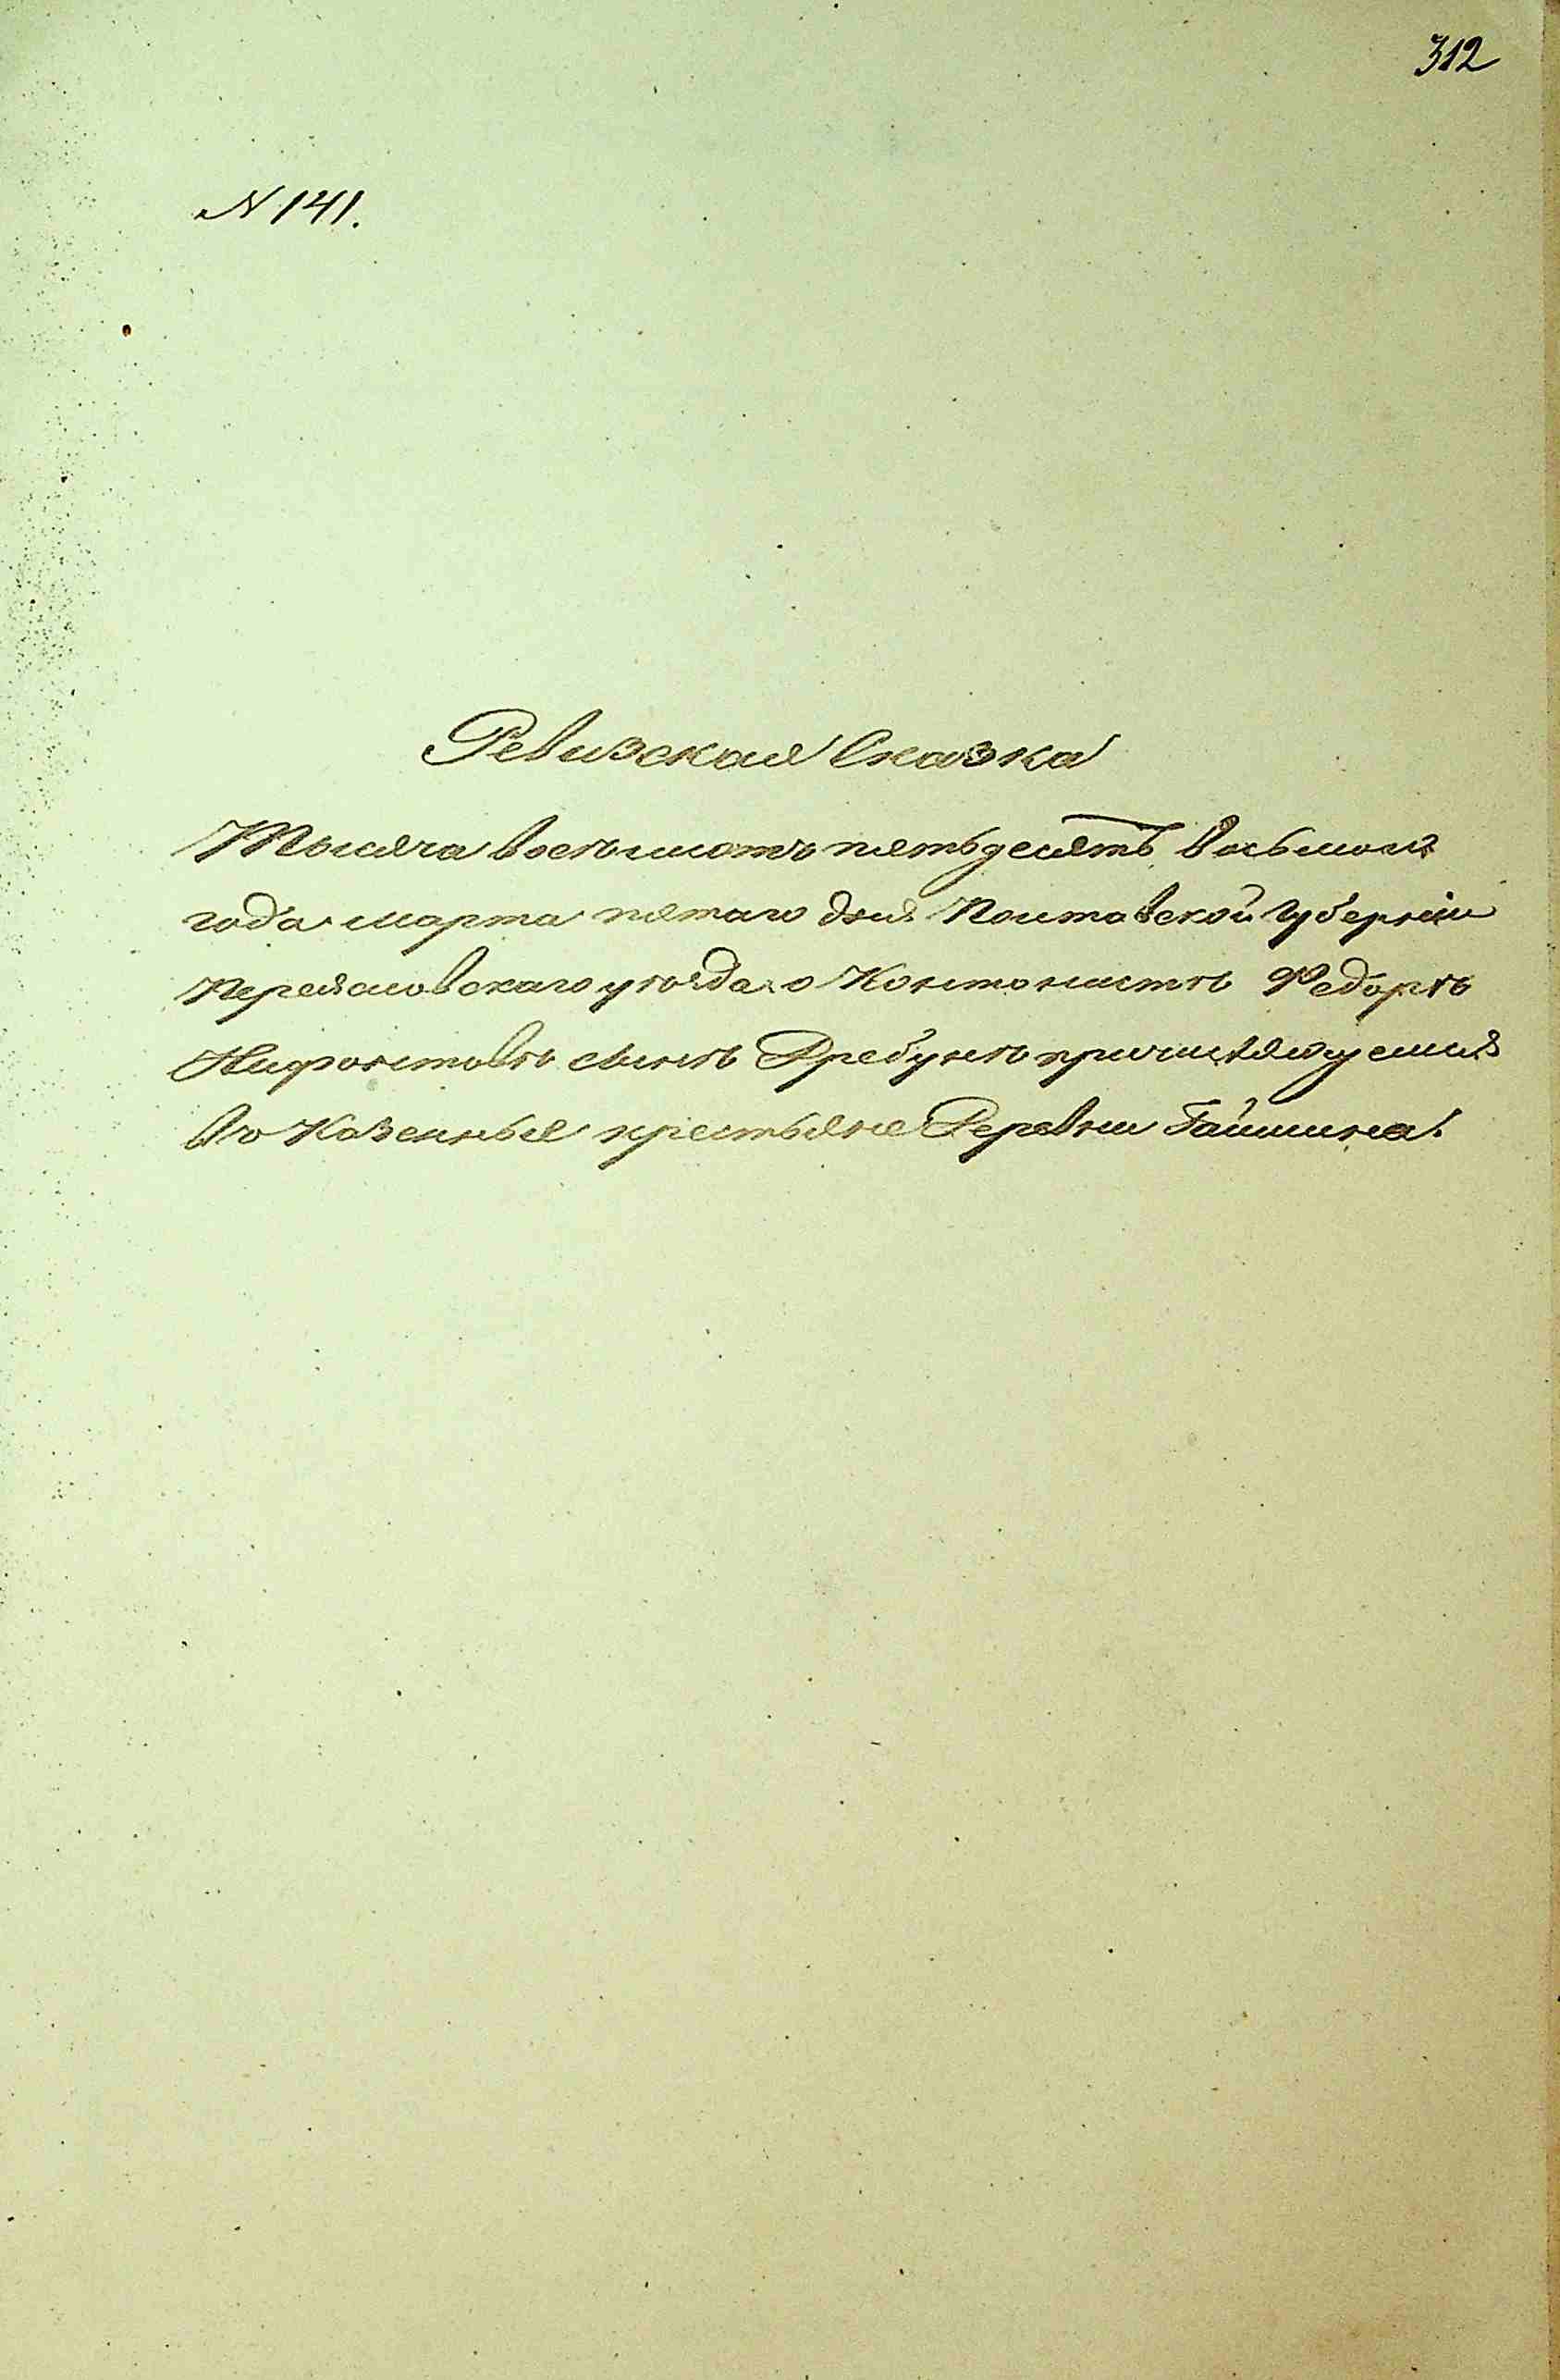 312
N 141.
Ревизская Сказка
Тысяча восемьсотъ пятьдесятъ восьмого
года марта пятаго дня Полтавской Губерніи
Переяславскаго уѣзда о Кантонистѣ Федорѣ
сынѣ Дребунѣ причисляющемся
въ Казенные крестьяне Деревни Гайшина.